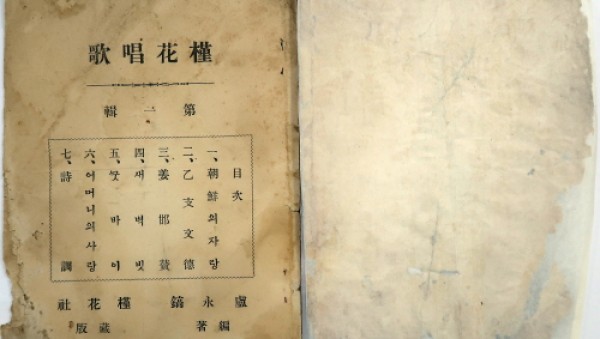 槿花唱歌
第一輯
目次
一、朝鮮의자랑
二、乙支文德
三、姜邯贊
四、새벽빗
五、바이
六、어머니의사랑
七、詩調
盧永鎬 編著
槿花社 藏版